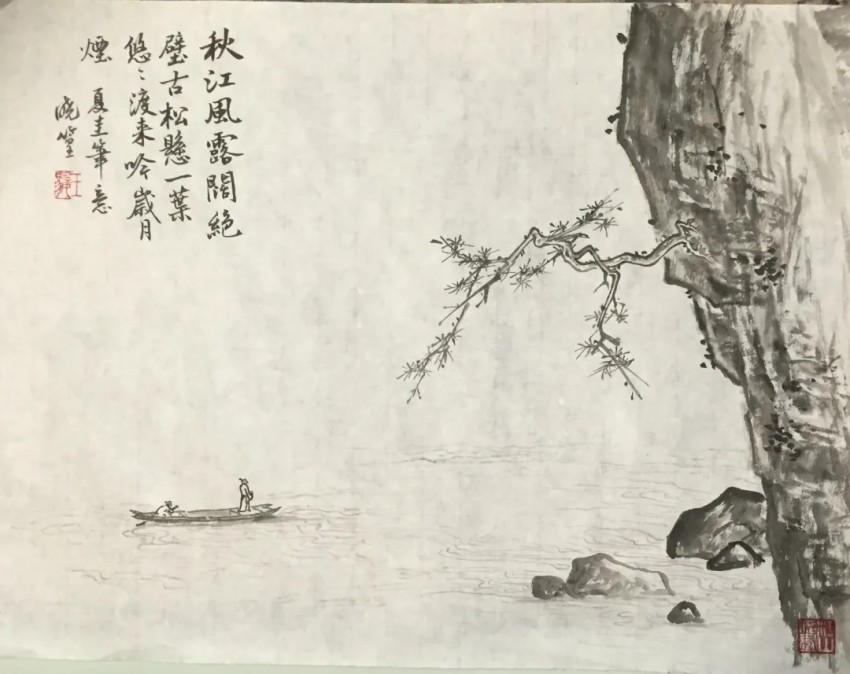 秋江風露闊絶
壁古松懸一葉
悠々渡来吟歳月
煙 夏圭筆意
暁